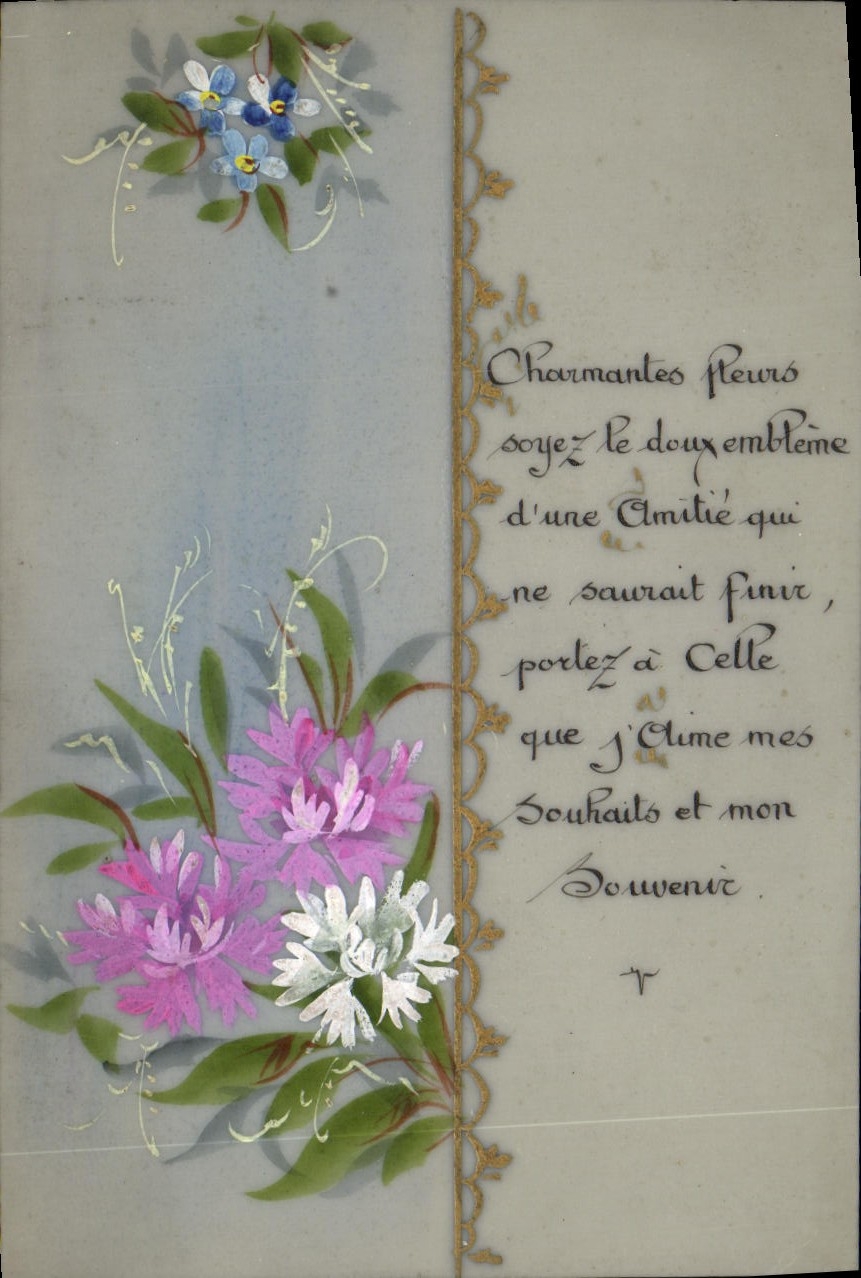 Charmantes fleurs
soyez le doux emblème
d'une Amitié qui
ne saurait finir,
portez à Celle
que j'Aime mes
Souhaits et mon
Souvenir.